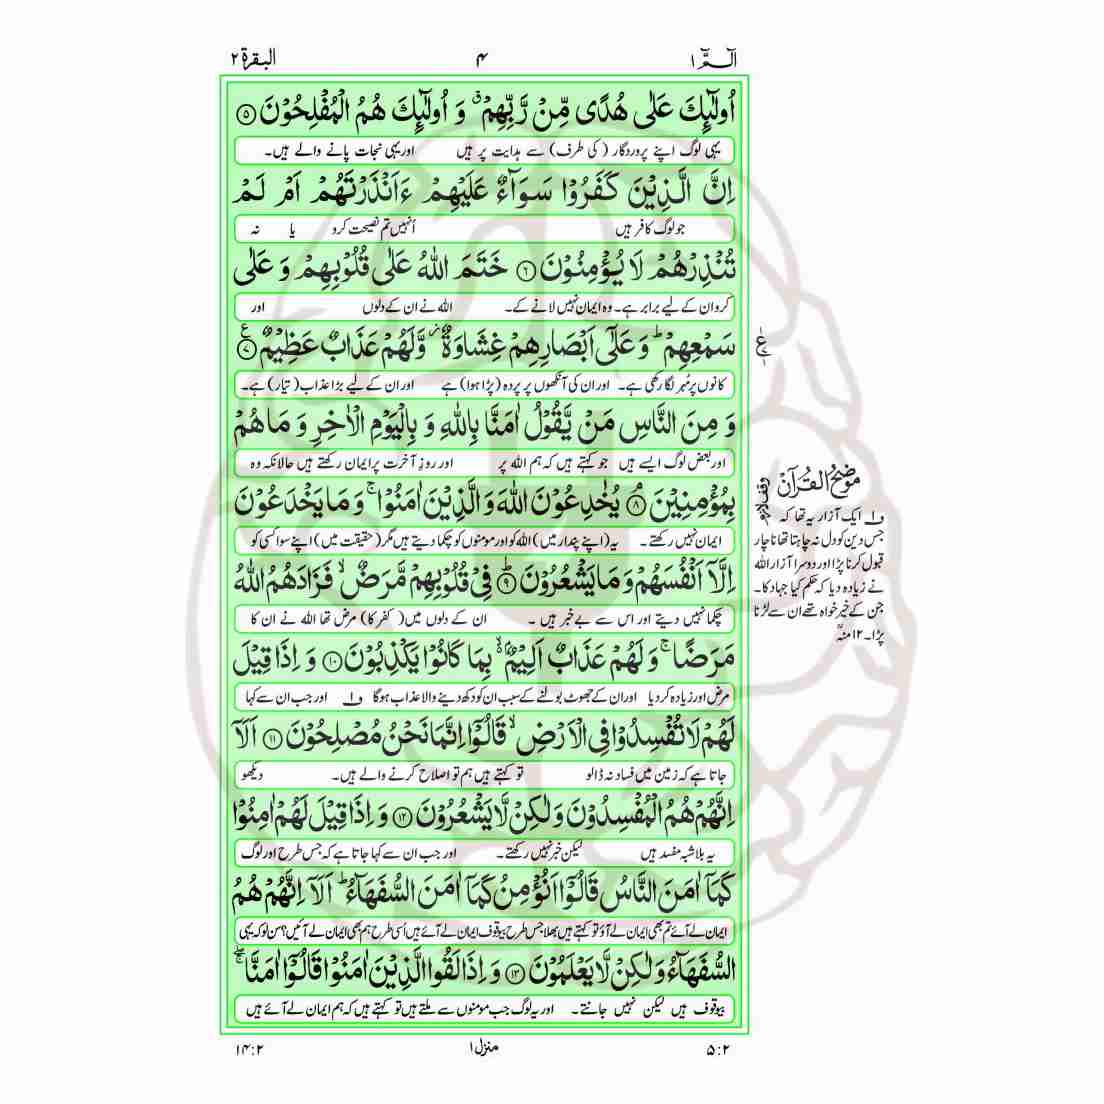 الٓـمّٓ ۱ ۴ البقرة ۲
اُولٰٓئِكَ عَلٰى هُدًى مِّنْ رَّبِّهِمْ ۗ وَ اُولٰٓئِكَ هُمُ الْمُفْلِحُوْنَ ۵
یہی لوگ اپنے پروردگار (کی طرف) سے ہدایت پر ہیں اور یہی نجات پانے والے ہیں۔
اِنَّ الَّذِيْنَ كَفَرُوْا سَوَآءٌ عَلَيْهِمْ ءَاَنْذَرْتَهُمْ اَمْ لَمْ
جو لوگ کافر ہیں اُنہیں تم نصیحت کرو یا نہ
تُنْذِرْهُمْ لَا يُؤْمِنُوْنَ ۶ خَتَمَ اللّٰهُ عَلٰى قُلُوْبِهِمْ وَ عَلٰى
کرو ان کے لیے برابر ہے۔ وہ ایمان نہیں لانے کے۔ اللہ نے ان کے دلوں اور
سَمْعِهِمْ ؕ وَ عَلٰٓى اَبْصَارِهِمْ غِشَاوَةٌ ؗ وَّلَهُمْ عَذَابٌ عَظِيْمٌ ۷ ع
کانوں پر مُہر لگا رکھی ہے۔ اور ان کی آنکھوں پر پردہ (پڑا ہوا) ہے اور ان کے لیے بڑا عذاب (تیار) ہے۔
وَ مِنَ النَّاسِ مَنْ يَّقُوْلُ اٰمَنَّا بِاللّٰهِ وَ بِالْيَوْمِ الْاٰخِرِ وَ مَا هُمْ
اور بعض لوگ ایسے ہیں جو کہتے ہیں کہ ہم اللہ پر اور روزِ آخرت پر ایمان رکھتے ہیں حالانکہ وہ
بِمُؤْمِنِيْنَ ۸ يُخٰدِعُوْنَ اللّٰهَ وَ الَّذِيْنَ اٰمَنُوْا ۚ وَ مَا يَخْدَعُوْنَ
ایمان نہیں رکھتے۔ یہ (اپنے پندار میں) اللہ کو اور مومنوں کو چکما دیتے ہیں مگر (حقیقت میں) اپنے سوا کسی کو
اِلَّاۤ اَنْفُسَهُمْ وَ مَا يَشْعُرُوْنَ ۹ فِيْ قُلُوْبِهِمْ مَّرَضٌ ۙ فَزَادَهُمُ اللّٰهُ
چکما نہیں دیتے اور اس سے بے خبر ہیں۔ ان کے دلوں میں (کفر کا) مرض تھا اللہ نے ان کا
مَرَضًا ۚ وَ لَهُمْ عَذَابٌ اَلِيْمٌ ۙ۬ بِمَا كَانُوْا يَكْذِبُوْنَ ۱۰ وَ اِذَا قِيْلَ
مرض اور زیادہ کر دیا اور ان کے جھوٹ بولنے کے سبب ان کو دکھ دینے والا عذاب ہوگا و۱ اور جب ان سے کہا
لَهُمْ لَا تُفْسِدُوْا فِي الْاَرْضِ ۙ قَالُوْۤا اِنَّمَا نَحْنُ مُصْلِحُوْنَ ۱۱ اَلَاۤ
جاتا ہے کہ زمین میں فساد نہ ڈالو تو کہتے ہیں ہم تو اصلاح کرنے والے ہیں۔ دیکھو
اِنَّهُمْ هُمُ الْمُفْسِدُوْنَ وَ لٰكِنْ لَّا يَشْعُرُوْنَ ۱۲ وَ اِذَا قِيْلَ لَهُمْ اٰمِنُوْا
یہ بلاشبہ مفسد ہیں لیکن خبر نہیں رکھتے۔ اور جب ان سے کہا جاتا ہے کہ جس طرح اور لوگ
كَمَاۤ اٰمَنَ النَّاسُ قَالُوْۤا اَنُؤْمِنُ كَمَاۤ اٰمَنَ السُّفَهَآءُ ؕ اَلَاۤ اِنَّهُمْ هُمُ
ایمان لے آئے تم بھی ایمان لے آؤ تو کہتے ہیں بھلا جس طرح بیوقوف ایمان لے آئے ہیں اُسی طرح ہم بھی ایمان لے آئیں؟ سن لو کہ یہی
السُّفَهَآءُ وَ لٰكِنْ لَّا يَعْلَمُوْنَ ۱۳ وَ اِذَا لَقُوا الَّذِيْنَ اٰمَنُوْا قَالُوْۤا اٰمَنَّا ۖۚ
بیوقوف ہیں لیکن نہیں جانتے۔ اور یہ لوگ جب مومنوں سے ملتے ہیں تو کہتے ہیں کہ ہم ایمان لے آئے ہیں
۵:۲ منزل ۱ ۱۴:۲
ع
موضح القرآن
وقف لازم
و۱ ایک آزار یہ تھا کہ
جس دین کو دل نہ چاہتا تھا ناچار
قبول کرنا پڑا اور دوسرا آزار اللہ
نے زیادہ دیا کہ حکم کیا جہاد کا۔
جن کے خیر خواہ تھے ان سے لڑنا
پڑا۔ ۱۲ منہ